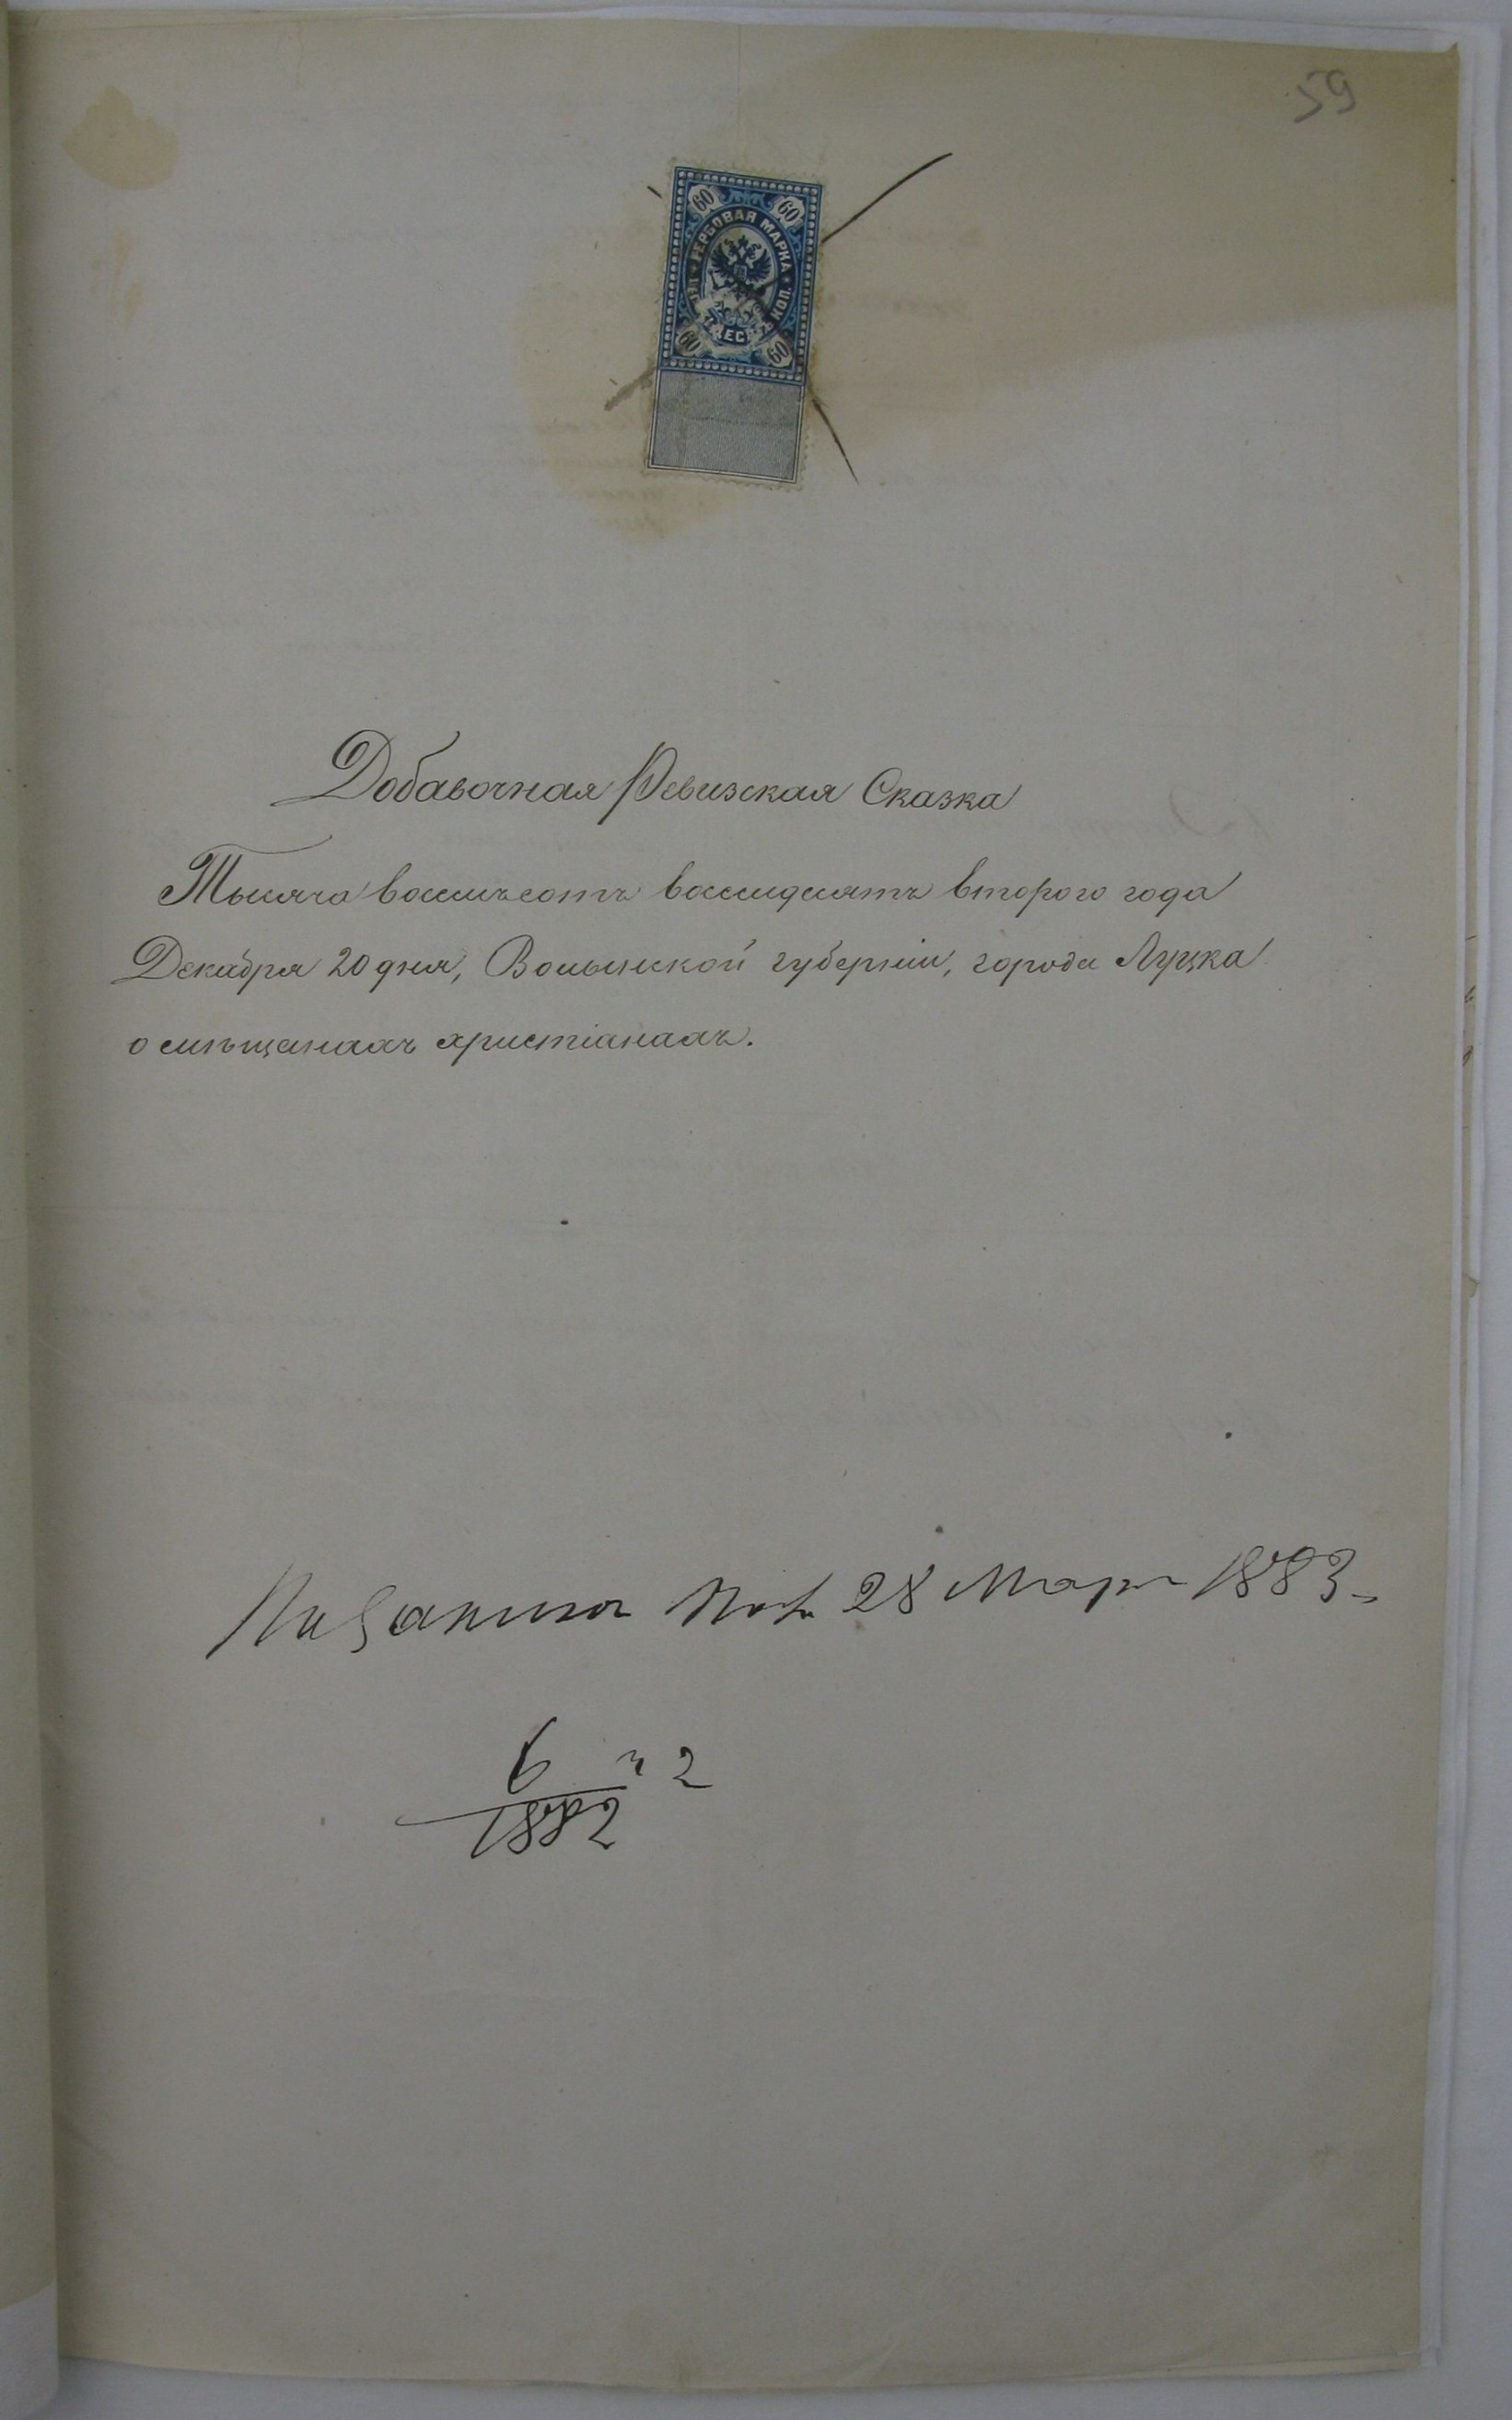 59
60 60
ГЕРБОВАЯ МАРКА
КОП.
60 60
Добавочная Ревизская Сказка
Тысяча восемьсотъ восемдесятъ второго года
Декабря 20 дня, Волынской губерніи, города Луцка
о мѣщанахъ христіанахъ.
28 Мар 1883
6 2
1882